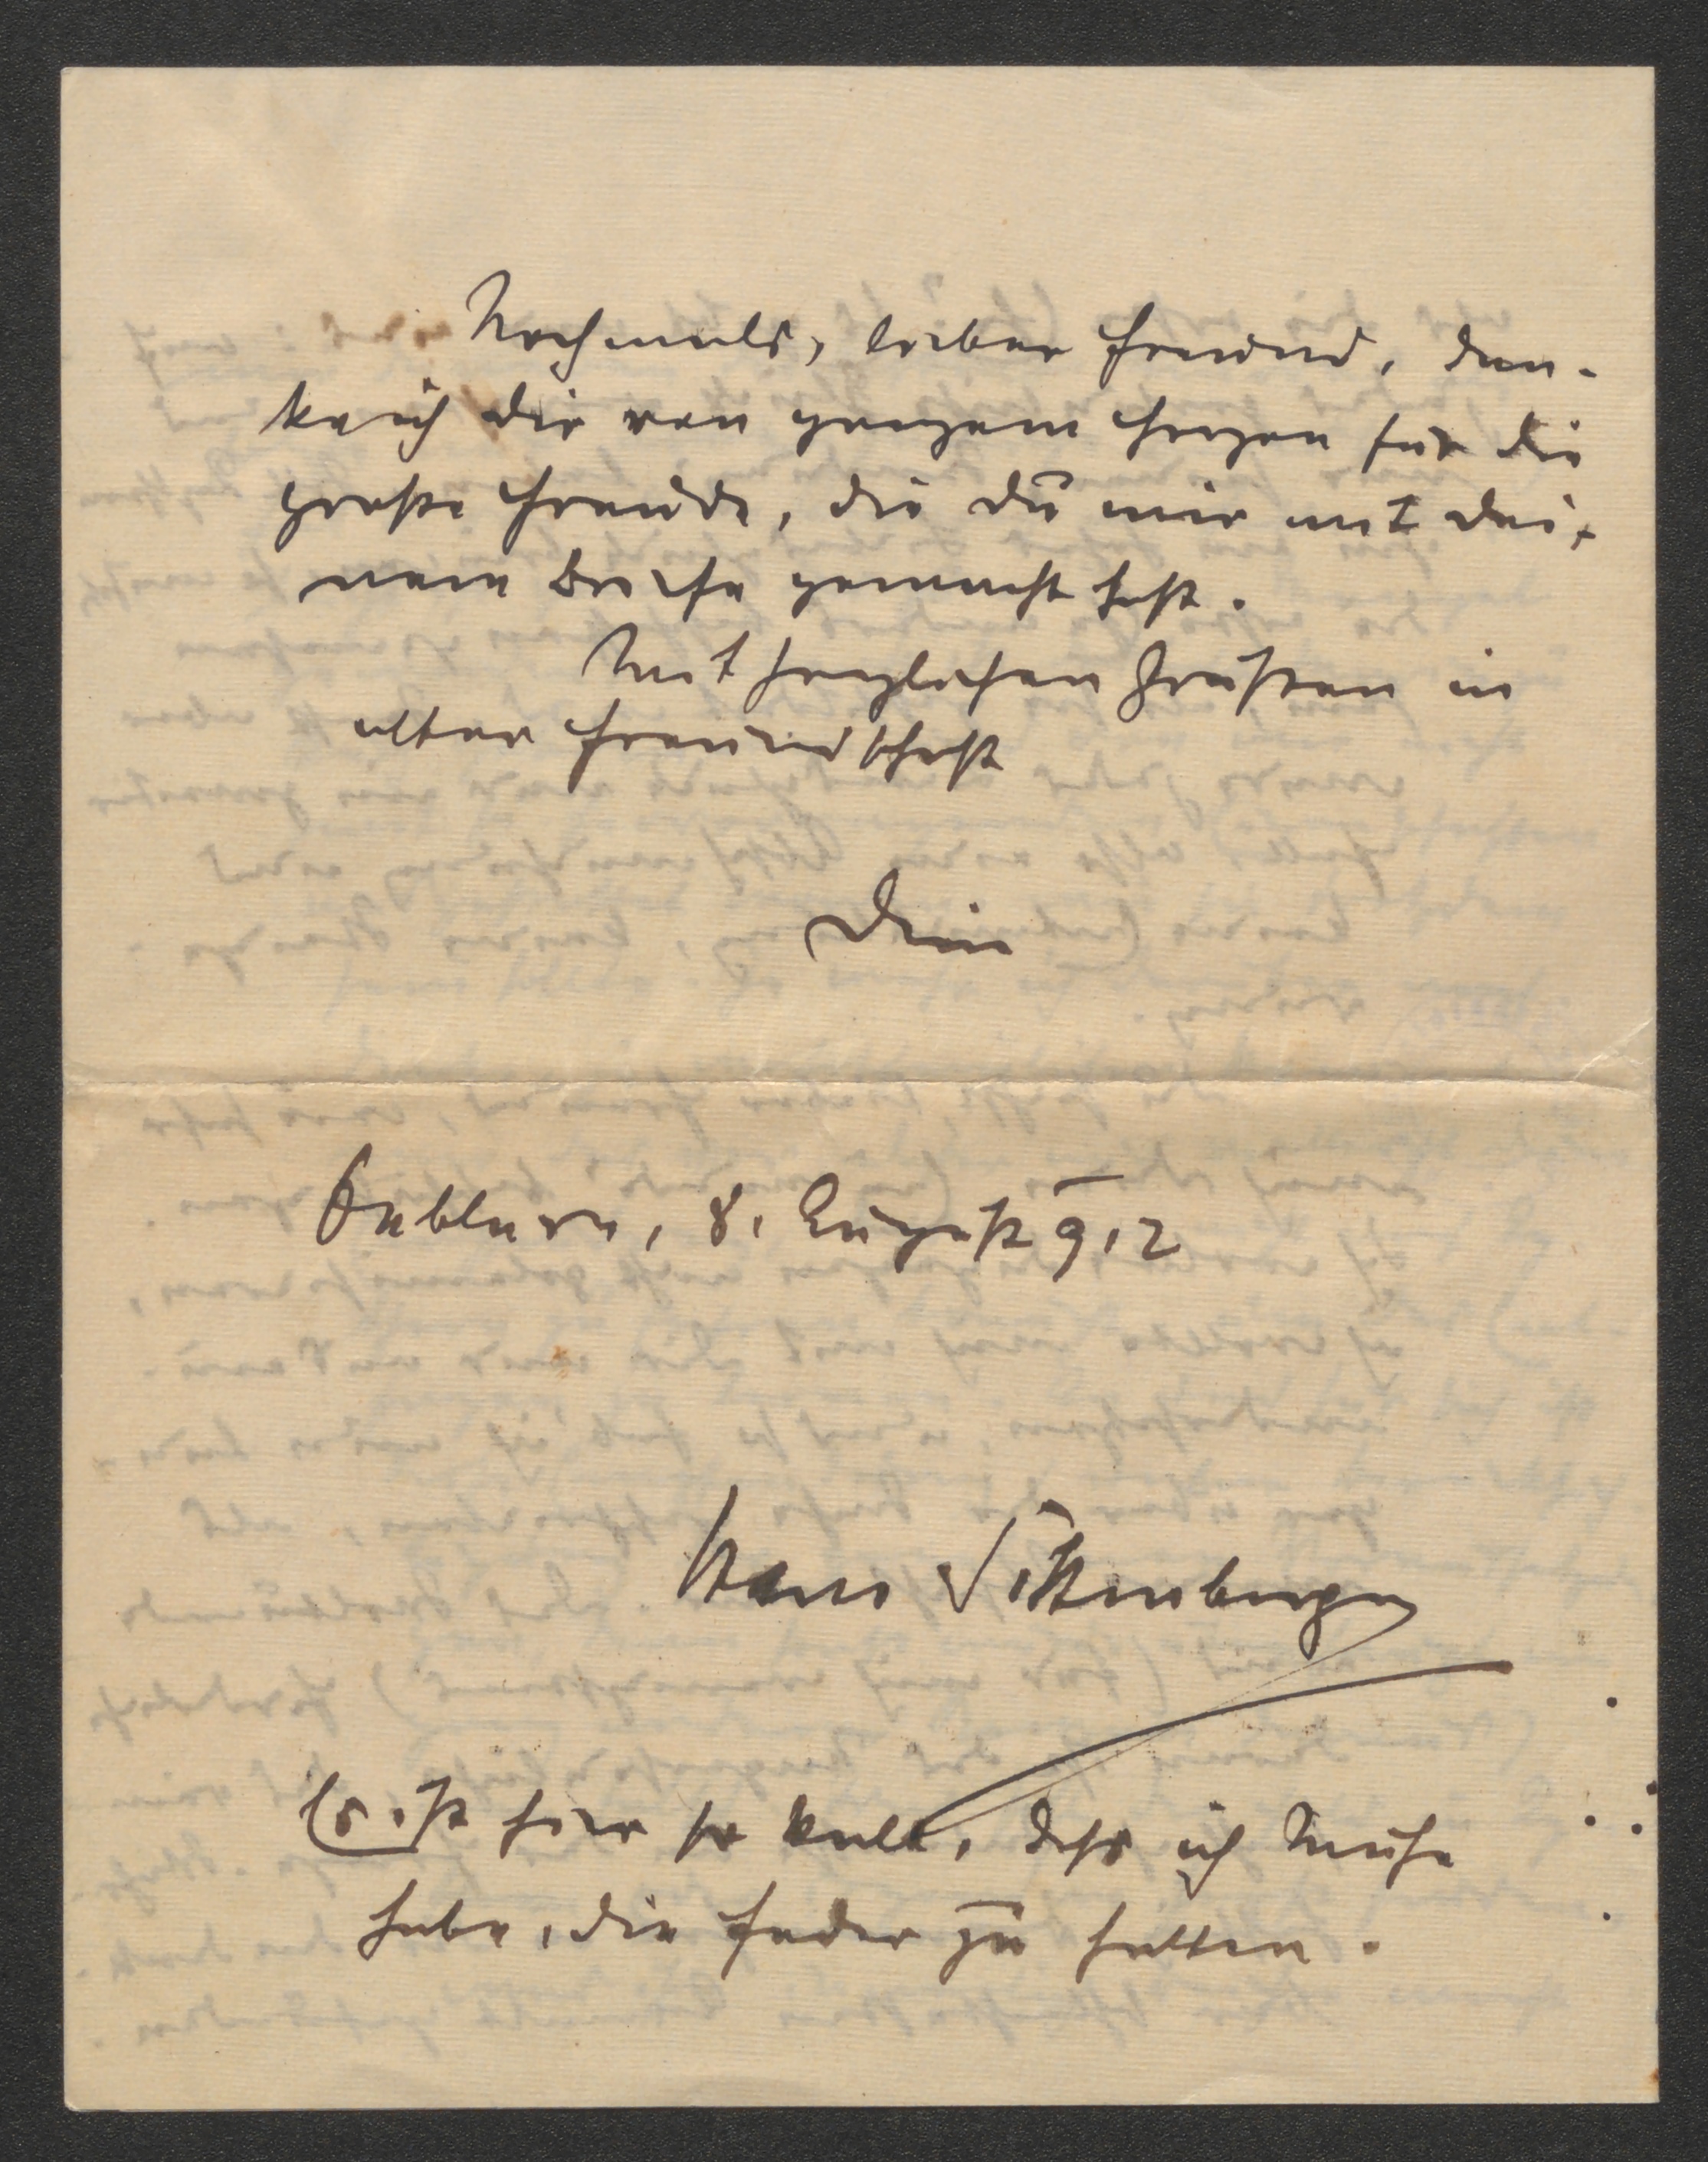 Nochmals, lieber Freund, dan-
ke ich dir von ganzem Herzen für die
große Freude, die du mir mit dei-
nem Briefe gemacht hast.
Mit herzlichen Grüßen in
alter Freundschaft
Dein
8. August 912
Hans Sittenberger
Es ist hier so kalt, dass ich Mühe
habe, die Feder zu halten.